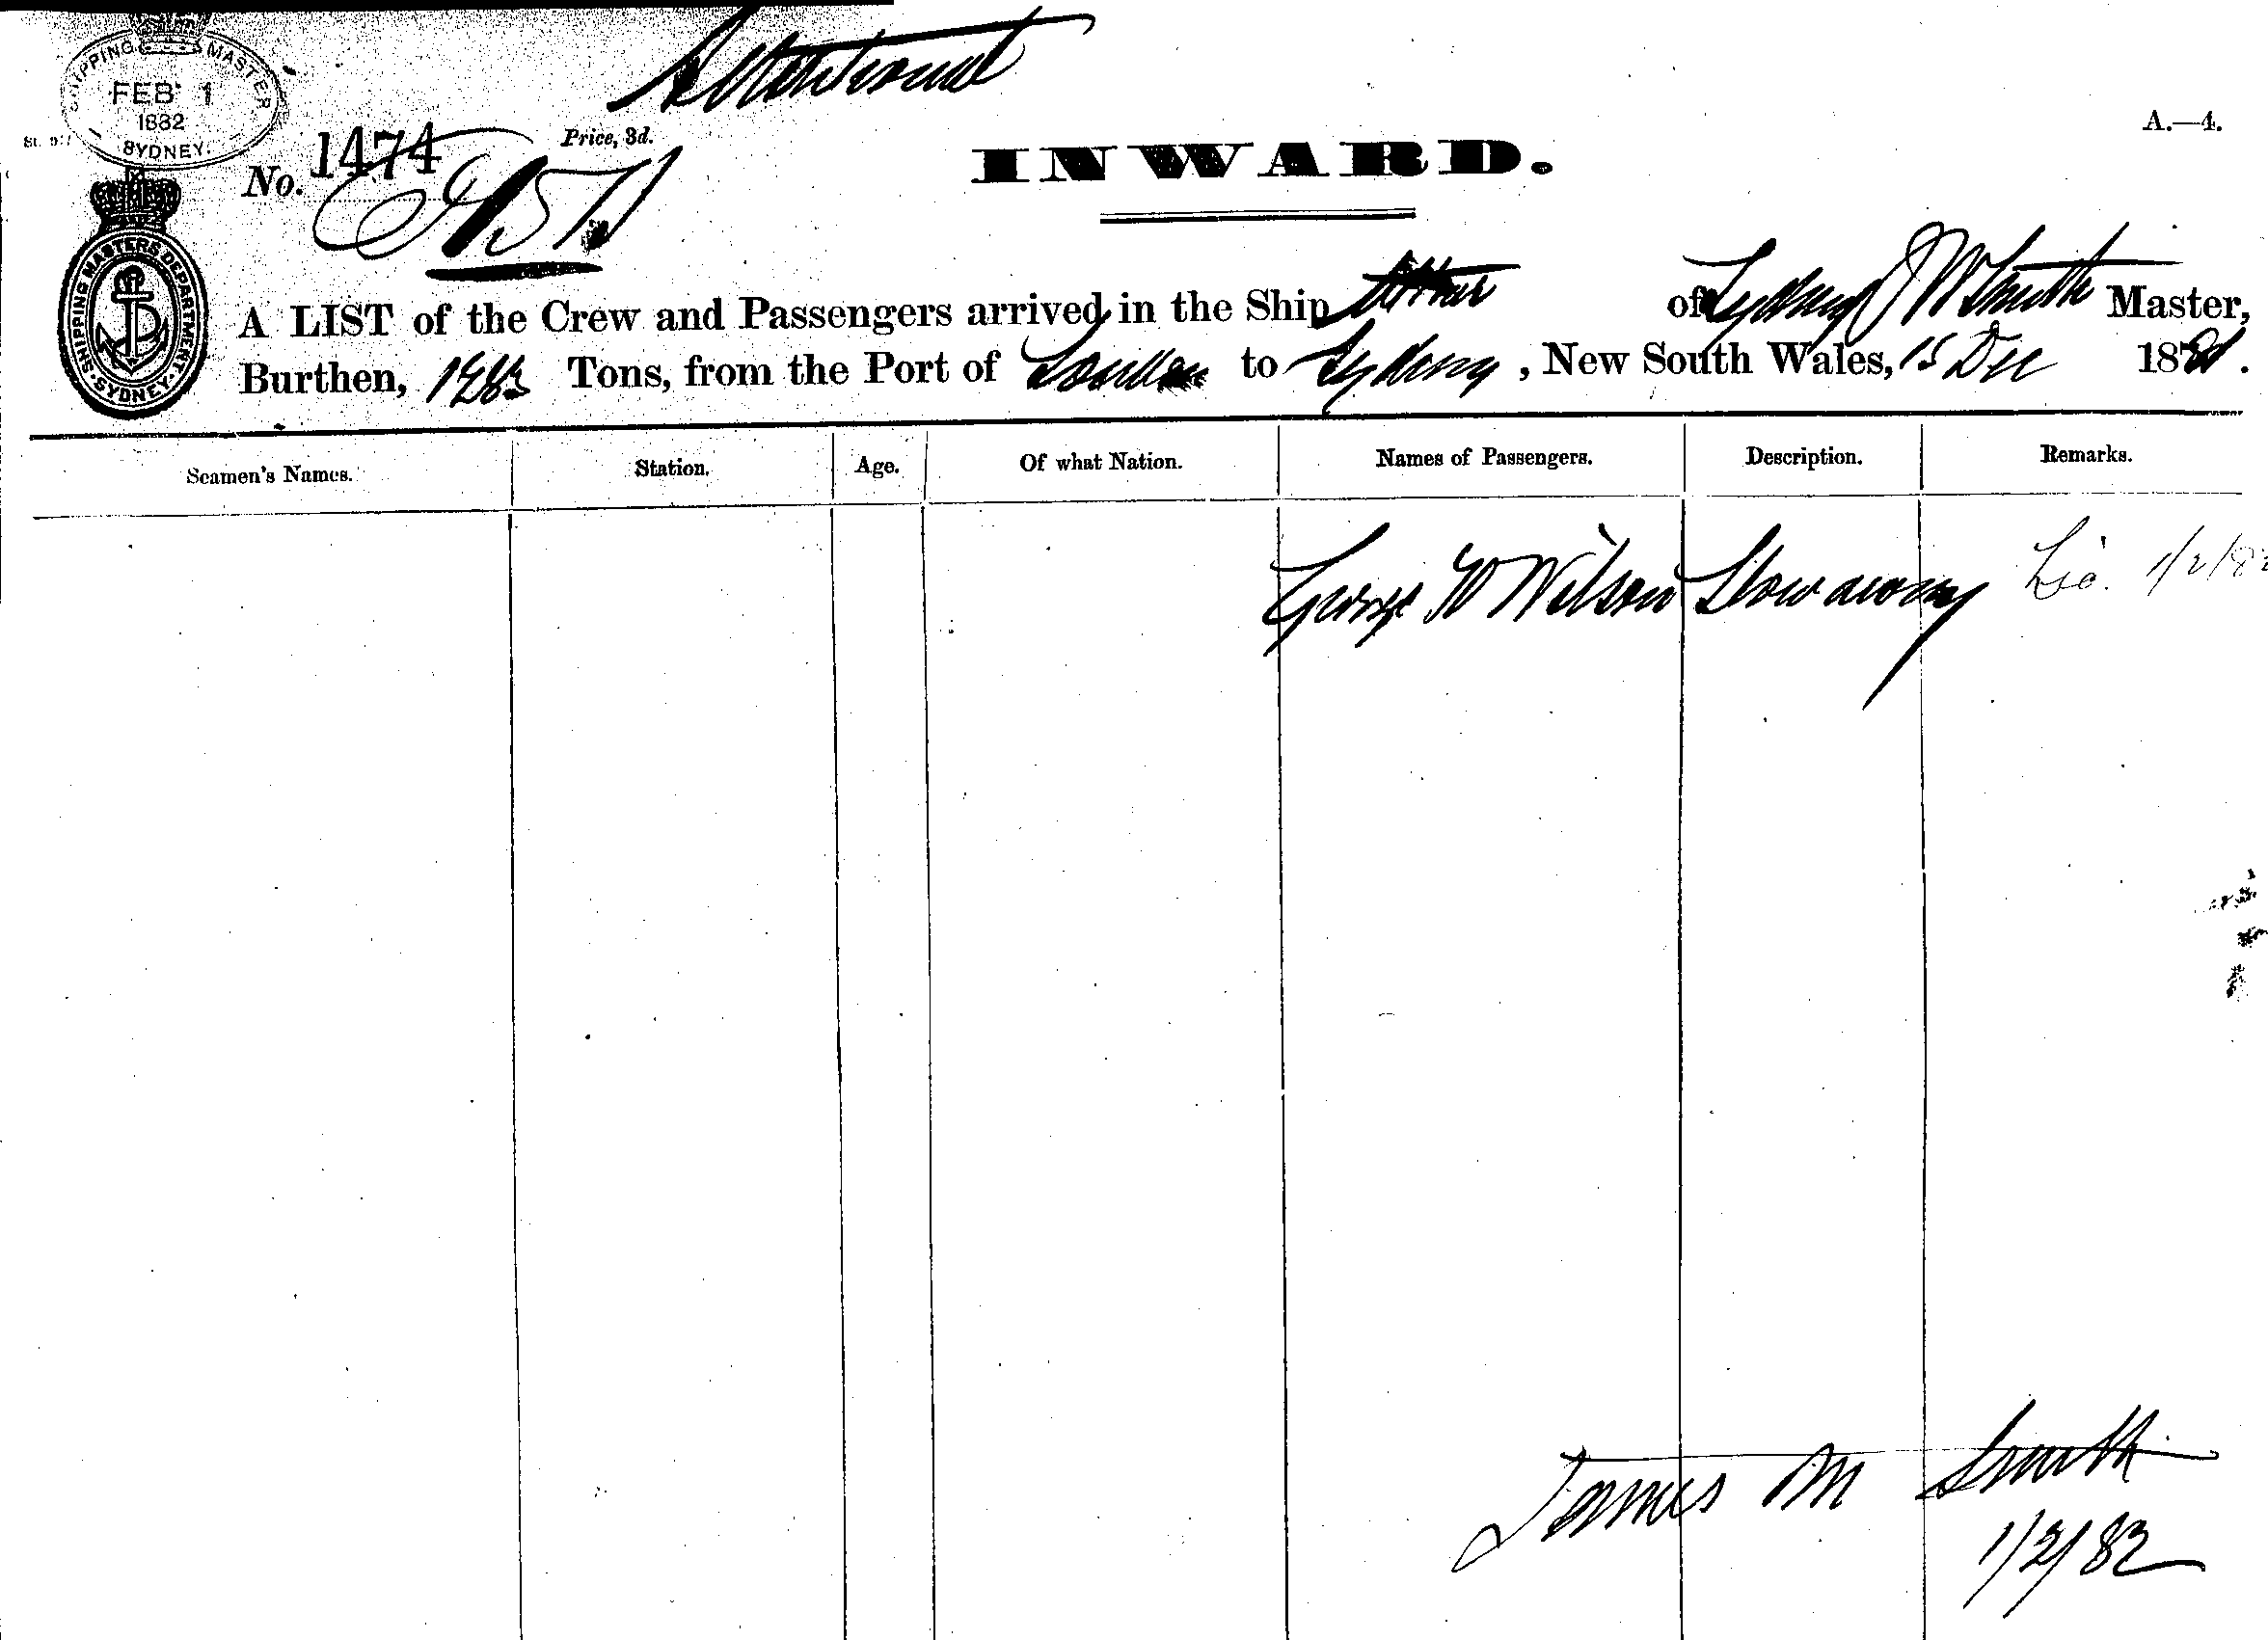 SHIPPING MASTER
FEB 1
1882
SYDNEY.
Additional
Price, 3d.
A.—4.
No. 1474
INWARD.
SHIPPING MASTERS DEPARTMENT. SYDNEY.
A LIST of the Crew and Passengers arrived in the Ship of Sydney J M Smith Master,
Burthen, Tons, from the Port of London to Sydney, New South Wales, 15 Dec 1881.
Seamen's Names. Station. Age. Of what Nation. Names of Passengers. Description. Remarks.
George W Wilson Stowaway 1/2/82
James M Smith
1/2/82